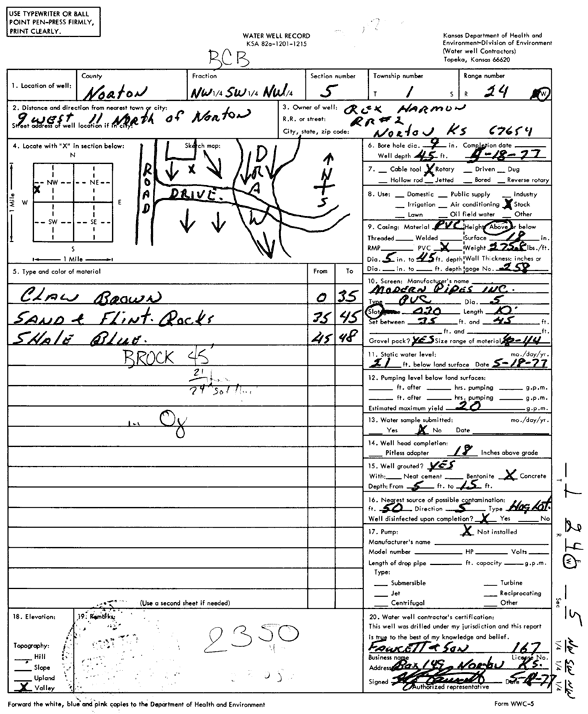 USE TYPEWRITER OR BALL
POINT PEN-PRESS FIRMLY,
PRINT CLEARLY.
WATER WELL RECORD
KSA 82a-1201-1215
Kansas Department of Health and
Environment-Division of Environment
(Water well Contractors)
Topeka, Kansas 66620
BCB
1. Location of well: County Norton Fraction NW 1/4 SW 1/4 NW 1/4 Section number 5 Township number T 1 S Range number R 24 W
2. Distance and direction from nearest town or city: 9 west 11 North of Norton
Street address of well location if in city:
3. Owner of well: Rex Harmon
R.R. or street: RR#2
City, state, zip code: Norton KS 67654
4. Locate with "X" in section below:
Sketch map:
N
NW NE
W E
SW SE
S
1 Mile
1 Mile
X
ROAD
DRIVE
DRAW
N
S
5. Type and color of material From To
Claw Brown 0 35
Sand & Flint Rocks 35 45
Shale Blue 45 48
BROCK 45'
21
24
Oy
(Use a second sheet if needed)
6. Bore hole dia. 9 in. Completion date
Well depth 45 ft. 4-18-77
7. Cable tool X Rotary Driven Dug
Hollow rod Jetted Bored Reverse rotary
8. Use: Domestic Public supply Industry
Irrigation Air conditioning X Stock
Lawn Oil field water Other
9. Casing: Material PVC Height: Above or below
Threaded Welded Surface 18 in.
RMP PVC X Weight 275.8 lbs./ft.
Dia. 5 in. to 45 ft. depth Wall Thickness: inches or
Dia. in. to ft. depth gage No. .258
10. Screen: Manufacturer's name
Modern Pipes Inc.
Type PVC Dia. 5
Slot .020 Length 10'
Set between 35 ft. and 45 ft.
ft. and ft.
Gravel pack? Yes Size range of material
11. Static water level: mo./day/yr.
21 ft. below land surface Date 5-18-77
12. Pumping level below land surfaces:
ft. after hrs. pumping g.p.m.
ft. after hrs. pumping g.p.m.
Estimated maximum yield 20 g.p.m.
13. Water sample submitted: mo./day/yr.
Yes X No Date
14. Well head completion:
Pitless adapter 18 Inches above grade
15. Well grouted? Yes
With: Neat cement Bentonite X Concrete
Depth: From 5 ft. to 15 ft.
16. Nearest source of possible contamination:
ft. 50 Direction S Type Hog Lot
Well disinfected upon completion? X Yes No
17. Pump: X Not installed
Manufacturer's name
Model number HP Volts
Length of drop pipe ft. capacity g.p.m.
Type:
Submersible Turbine
Jet Reciprocating
Centrifugal Other
18. Elevation:
Topography:
Hill
Slope
Upland
X Valley
19. Remarks:
2350
20. Water well contractor's certification:
This well was drilled under my jurisdiction and this report
is true to the best of my knowledge and belief.
Fawcett & Son 167
Business name License No.
Address Box 149 Norton KS.
Signed Date 5-18-77
Authorized representative
Forward the white, blue and pink copies to the Department of Health and Environment
Form WWC-5
T 1
R 24 W
Sec 5
NW SW NW
1/4 1/4 1/4